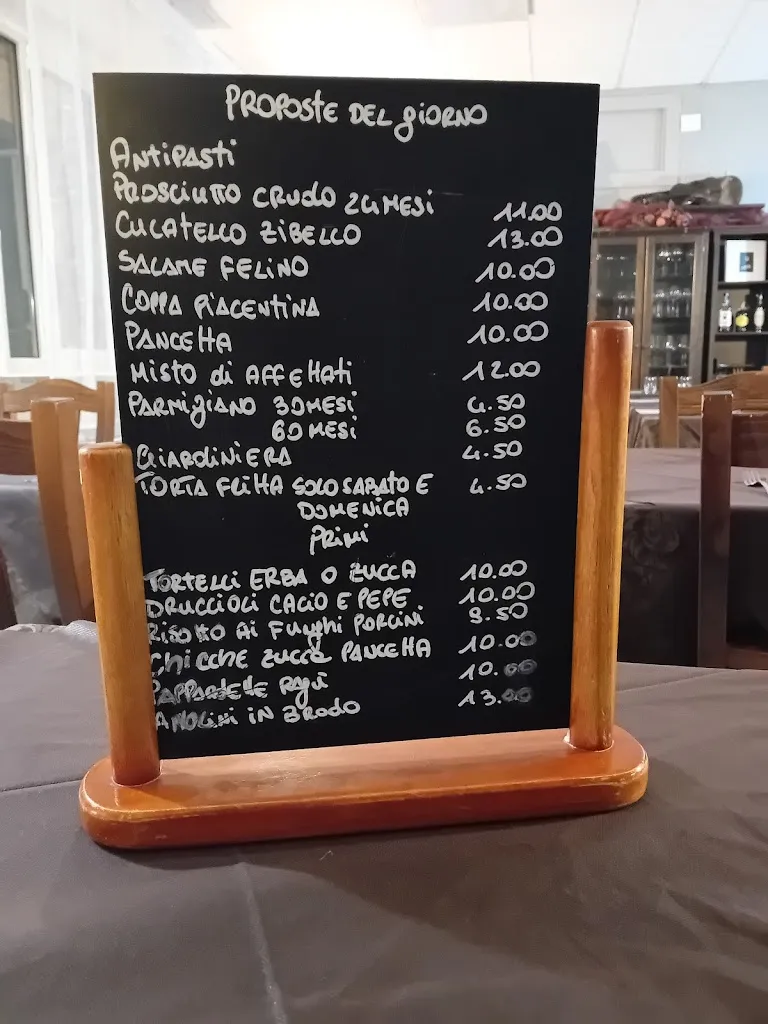 PROPOSTE DEL GIORNO
ANTIPASTI
PROSCIUTTO CRUDO 24 MESI 11.00
CULATELLO ZIBELLO 13.00
SALAME FELINO 10.00
COPPA PIACENTINA 10.00
PANCETTA 10.00
MISTO di AFFETTATI 12.00
PARMIGIANO 30 MESI 4.50
60 MESI 6.50
GIARDINIERA 4.50
TORTA FRITTA SOLO SABATO E 4.50
DOMENICA
PRIMI
TORTELLI ERBA O ZUCCA 10.00
DRUCCIOLI CACIO E PEPE 10.00
RISOTTO AI FUNGHI PORCINI 9.50
CHICCHE ZUCCA PANCETTA 10.00
PAPPARDELLE RAGÙ 10.00
ANOLINI IN BRODO 13.00